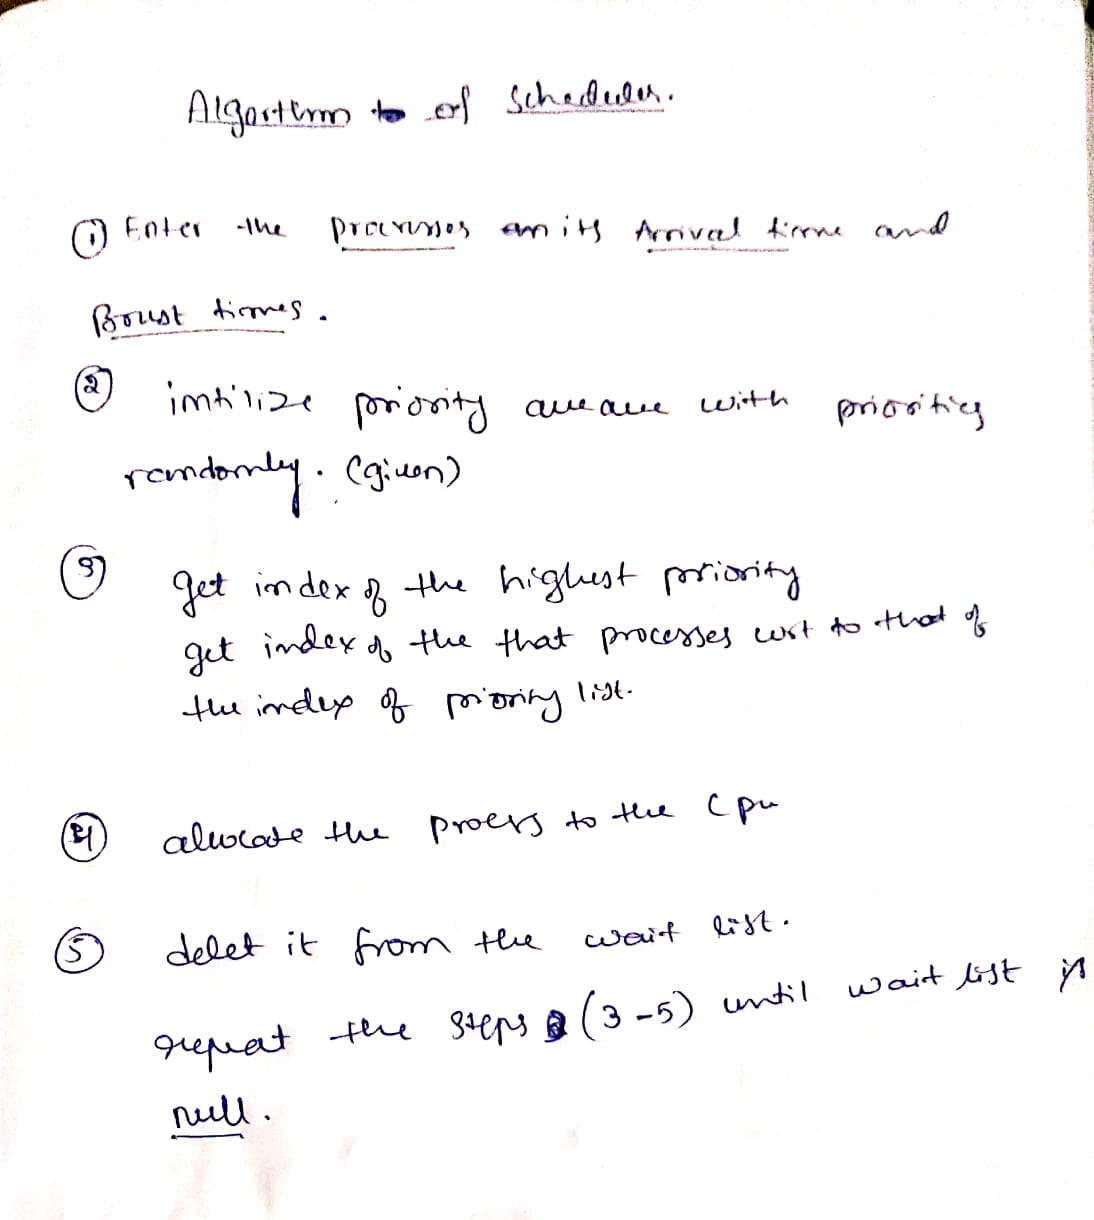 Algorthm to of Scheduler.
① Enter the Processes an its Arrival time and
Boust times.
② intilize priority queaue with priorities
randomly. (given)
③ get index of the highest priority
get index of the that processes wrt to that of
the index of priority list.
④ allocate the proess to the Cpu
⑤ delet it from the wait list.
repeat the steps (3-5) until wait list is
null.